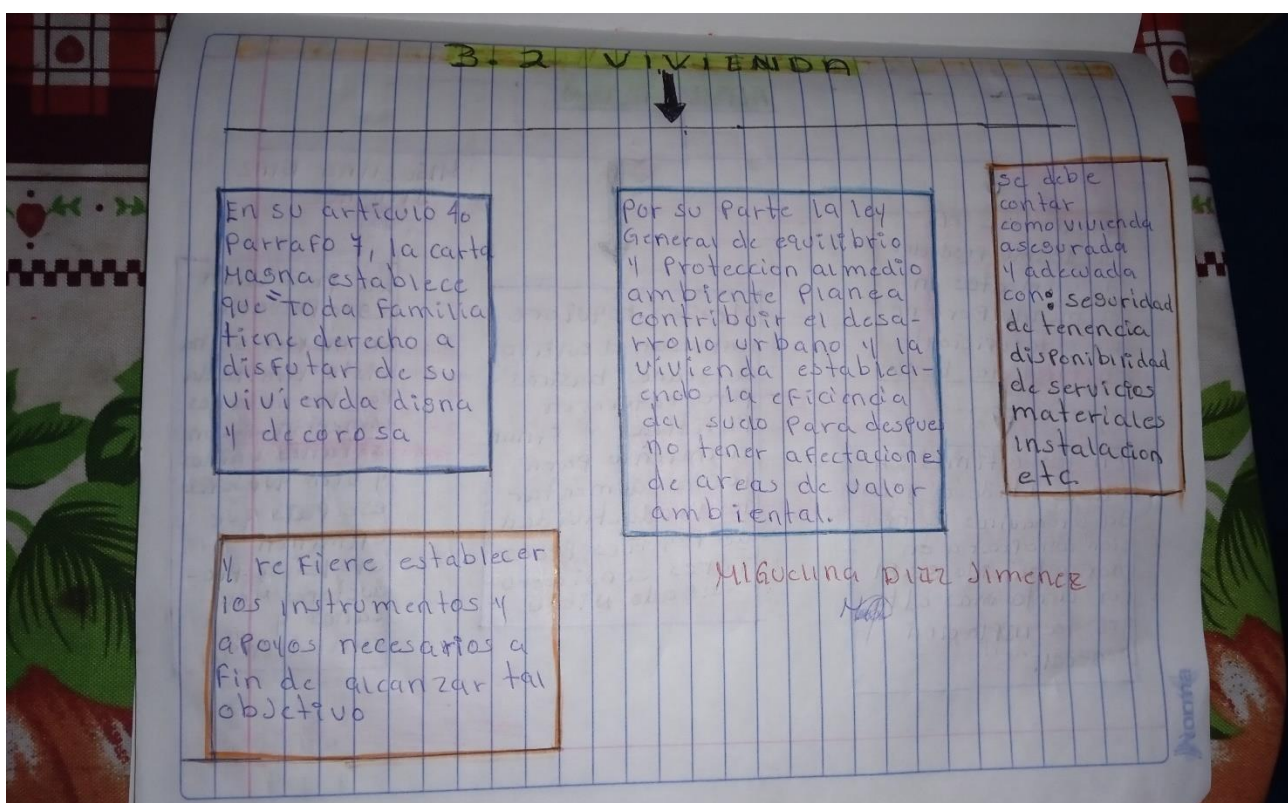 3.2 VIVIENDA
En su articulo 4o
Parrafo 7, la carta
Magna establece
que "Toda Familia
tiene derecho a
disfutar de su
vivienda digna
y decorosa
y refiere establecer
los instrumentos y
apoyos necesarios a
fin de alcanzar tal
objetivo
Por su Parte la ley
General de equilibrio
y Proteccion al medio
ambiente Planea
contribuir el desa-
rrollo urbano y la
vivienda estableci-
endo la eficiencia
del suelo Para despue
no tener afectaciones
de areas de valor
ambiental.
se debe
contar
como vivienda
asegurada
y adecuada
con: seguridad
de tenencia
disponibilidad
de servicios
materiales
instalacion
etc.
Miguelina Diaz Jimenez
Norma